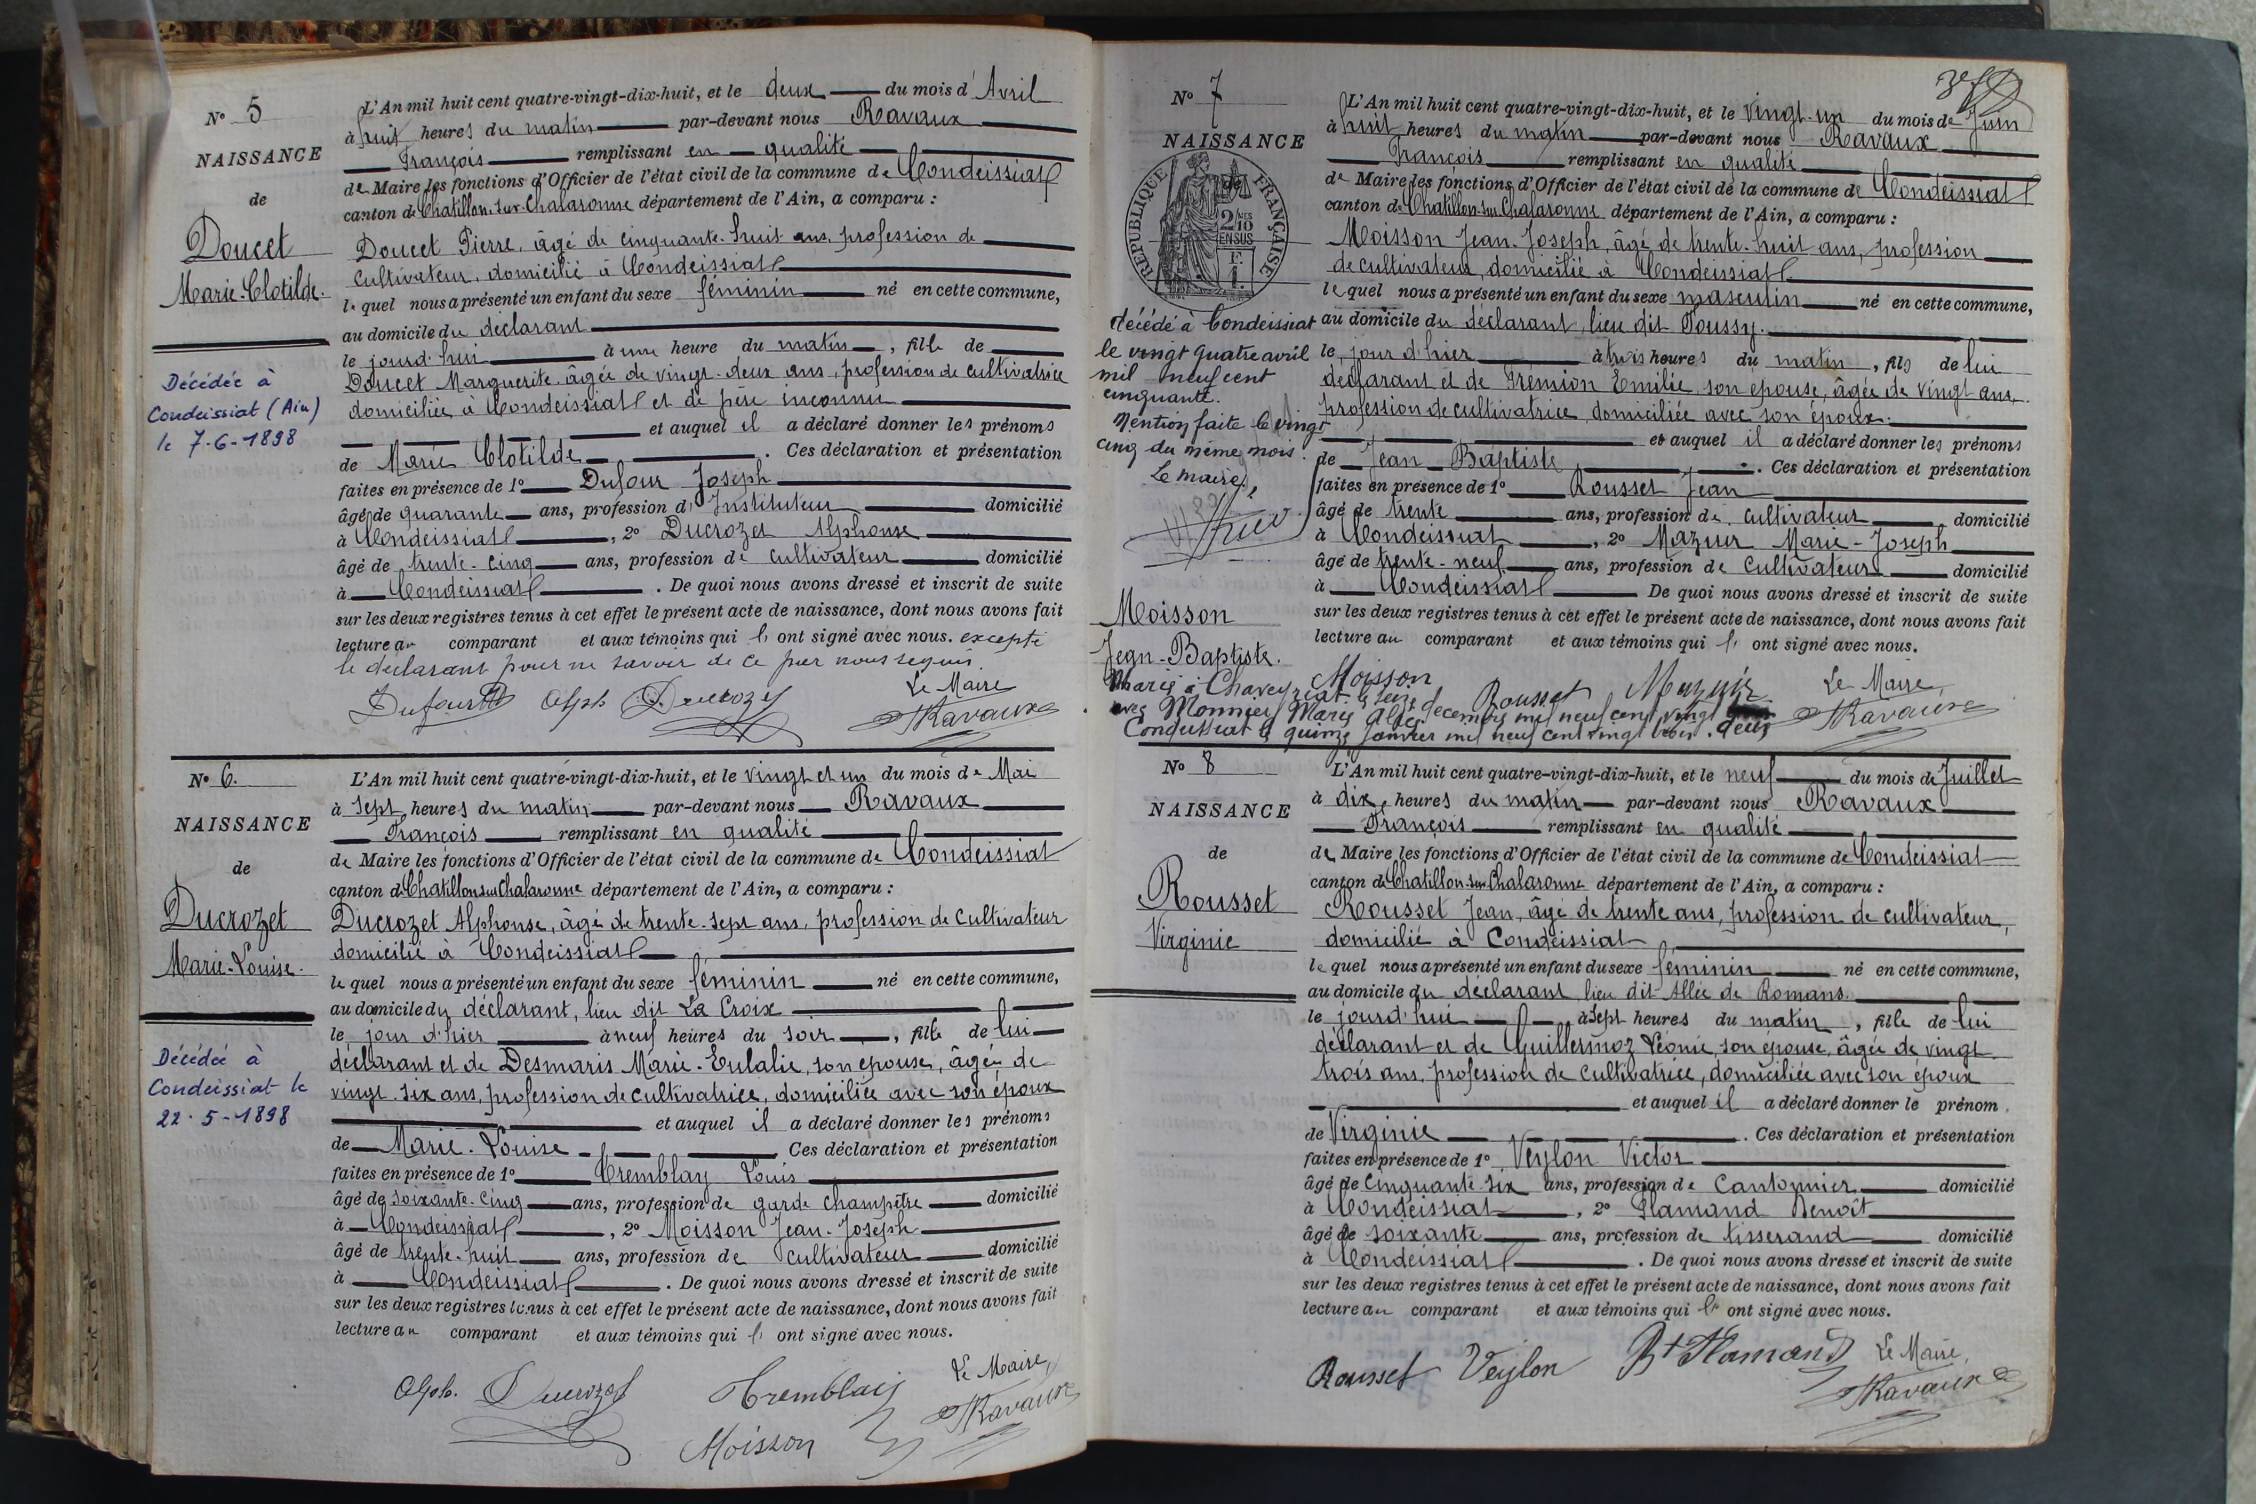 N° 5
NAISSANCE
de
Doucet
Marie-Clotilde.
Décédée à
Condeissiat (Ain)
le 7-6-1898
L'An mil huit cent quatre-vingt-dix-huit, et le deux du mois d'Avril
à huit heures du matin par-devant nous Ravaux
François remplissant en qualité
de Maire les fonctions d'Officier de l'état civil de la commune de Condeissiat
canton de Chatillon-sur-Chalaronne département de l'Ain, a comparu :
Doucet Pierre, âgé de cinquante-huit ans, profession de
cultivateur, domicilié à Condeissiat
lequel nous a présenté un enfant du sexe féminin né en cette commune,
au domicile du déclarant
le jourd'hui à une heure du matin, fille de
Doucet Marguerite âgée de vingt-deux ans, profession de cultivatrice
domiciliée à Condeissiat et de père inconnu
et auquel il a déclaré donner les prénoms
de Marie Clotilde. Ces déclaration et présentation
faites en présence de 1° Dufour Joseph
âgé de quarante ans, profession d'Instituteur domicilié
à Condeissiat, 2° Ducrozet Alphonse
âgé de trente-cinq ans, profession de cultivateur domicilié
à Condeissiat. De quoi nous avons dressé et inscrit de suite
sur les deux registres tenus à cet effet le présent acte de naissance, dont nous avons fait
lecture au comparant et aux témoins qui l' ont signé avec nous. excepté
le déclarant pour ne savoir de ce par nous requis.
Dufour Alph. Ducrozet Le Maire
Ravaux
N° 6.
NAISSANCE
de
Ducrozet
Marie-Louise.
Décédée à
Condeissiat le
22-5-1898
L'An mil huit cent quatre-vingt-dix-huit, et le vingt et un du mois de Mai
à sept heures du matin par-devant nous Ravaux
François remplissant en qualité
de Maire les fonctions d'Officier de l'état civil de la commune de Condeissiat
canton de Chatillon sur Chalaronne département de l'Ain, a comparu :
Ducrozet Alphonse, âgé de trente-sept ans, profession de cultivateur
domicilié à Condeissiat
lequel nous a présenté un enfant du sexe féminin né en cette commune,
au domicile du déclarant, lieu dit La Croix
le jour d'hier à neuf heures du soir, fille de lui
déclarant et de Desmaris Marie-Eulalie, son épouse, âgée de
vingt-six ans, profession de cultivatrice, domiciliée avec son époux
et auquel il a déclaré donner les prénoms
de Marie-Louise Ces déclaration et présentation
faites en présence de 1° Tremblay Louis
âgé de soixante-cinq ans, profession de garde champêtre domicilié
à Condeissiat, 2° Moisson Jean-Joseph
âgé de trente-huit ans, profession de cultivateur domicilié
à Condeissiat. De quoi nous avons dressé et inscrit de suite
sur les deux registres tenus à cet effet le présent acte de naissance, dont nous avons fait
lecture au comparant et aux témoins qui l' ont signé avec nous.
Alph. Ducrozet Tremblay Le Maire,
Moisson Ravaux
N° 7
NAISSANCE
de
RÉPUBLIQUE FRANÇAISE
2/10 EN SUS
F. 1.
décédé à Condeissiat
le vingt quatre avril
mil neuf cent
cinquante.
Mention faite le vingt
cinq du même mois.
Le maire,
Moisson
Jean-Baptiste.
L'An mil huit cent quatre-vingt-dix-huit, et le vingt-un du mois de Juin
à huit heures du matin par-devant nous Ravaux
François remplissant en qualité
de Maire les fonctions d'Officier de l'état civil de la commune de Condeissiat
canton de Chatillon-sur-Chalaronne département de l'Ain, a comparu :
Moisson Jean-Joseph, âgé de trente-huit ans, profession
de cultivateur, domicilié à Condeissiat
lequel nous a présenté un enfant du sexe masculin né en cette commune,
au domicile du déclarant, lieu dit Poussy.
le jour d'hier à trois heures du matin, fils de lui
déclarant et de Trémion Emilie son épouse, âgée de vingt ans,
profession de cultivatrice, domiciliée avec son époux.
et auquel il a déclaré donner les prénoms
de Jean Baptiste. Ces déclaration et présentation
faites en présence de 1° Rousset Jean
âgé de trente ans, profession de cultivateur domicilié
à Condeissiat, 2° Mazuir Marie-Joseph
âgé de trente-neuf ans, profession de cultivateur domicilié
à Condeissiat De quoi nous avons dressé et inscrit de suite
sur les deux registres tenus à cet effet le présent acte de naissance, dont nous avons fait
lecture au comparant et aux témoins qui l' ont signé avec nous.
Moisson Rousset Mazuir Le Maire,
Ravaux
Marié à Chaveyriat le seize decembre mil neuf cent vingt deux
avec Monnier Marie Alice
Condeissiat le quinze Janvier mil neuf cent vingt trois.
N° 8
NAISSANCE
de
Rousset
Virginie
L'An mil huit cent quatre-vingt-dix-huit, et le neuf du mois de Juillet
à dix heures du matin par-devant nous Ravaux
François remplissant en qualité
de Maire les fonctions d'Officier de l'état civil de la commune de Condeissiat
canton de Chatillon-sur-Chalaronne département de l'Ain, a comparu :
Rousset Jean, âgé de trente ans, profession de cultivateur,
domicilié à Condeissiat
lequel nous a présenté un enfant du sexe féminin né en cette commune,
au domicile du déclarant lieu dit Allée de Romans.
le jourd'hui à sept heures du matin, fille de lui
déclarant et de Guillermoz Léonie, son épouse, âgée de vingt
trois ans, profession de cultivatrice, domiciliée avec son époux
et auquel il a déclaré donner le prénom
de Virginie. Ces déclaration et présentation
faites en présence de 1° Veylon Victor
âgé de cinquante-six ans, profession de cantonnier domicilié
à Condeissiat, 2° Flamand Benoît
âgé de soixante ans, profession de tisserand domicilié
à Condeissiat. De quoi nous avons dressé et inscrit de suite
sur les deux registres tenus à cet effet le présent acte de naissance, dont nous avons fait
lecture au comparant et aux témoins qui l' ont signé avec nous.
Rousset Veylon Bt Flamand Le Maire,
Ravaux